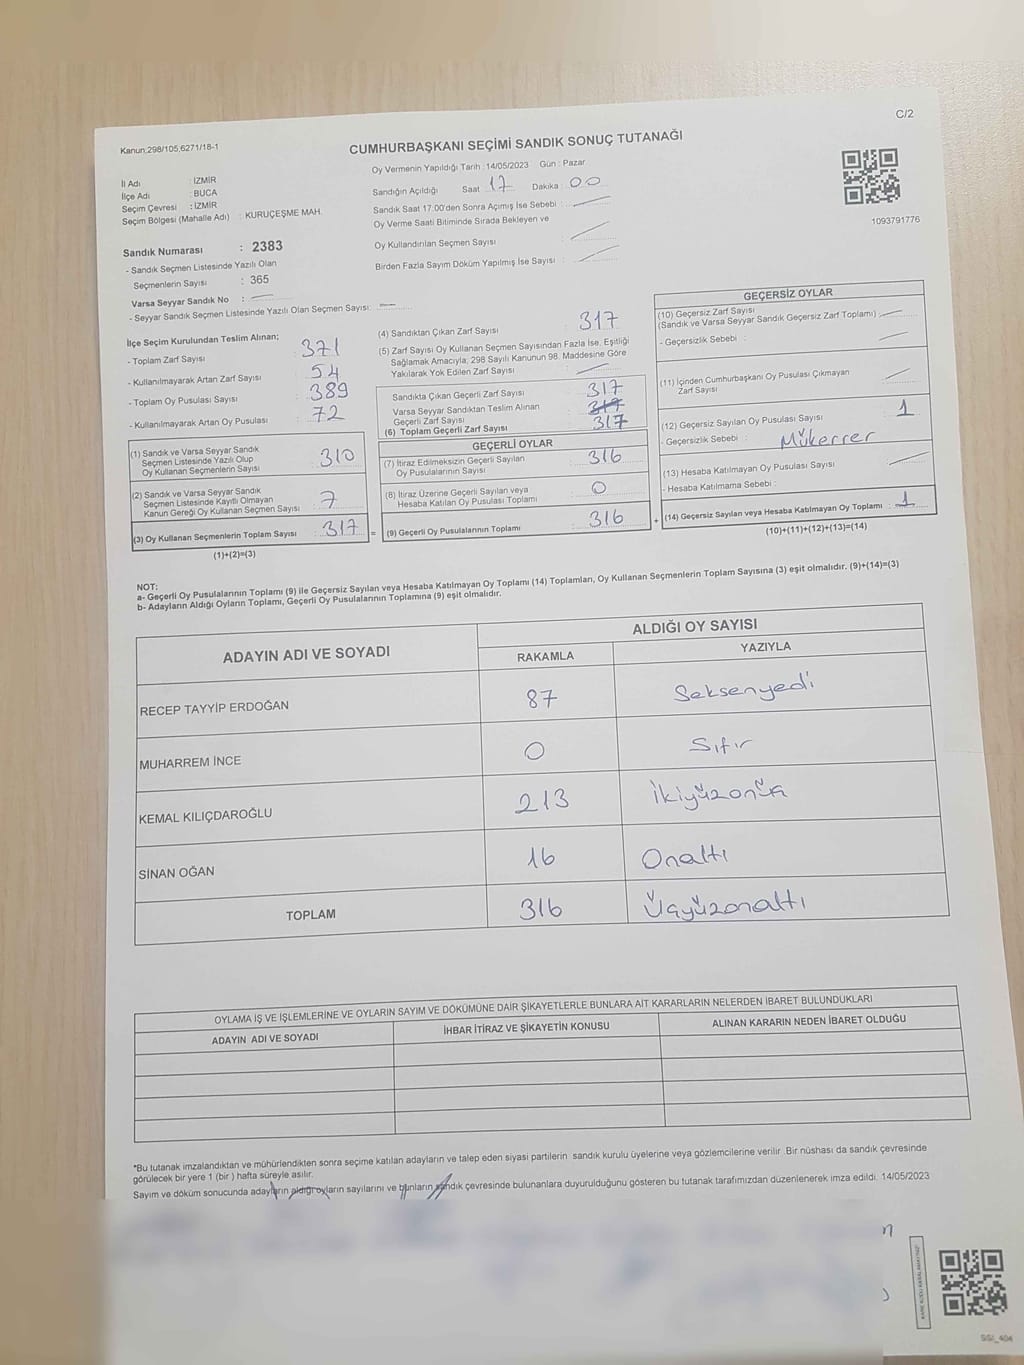 C/2
Kanun:298/105,6271/18-1
CUMHURBAŞKANI SEÇİMİ SANDIK SONUÇ TUTANAĞI
Oy Vermenin Yapıldığı Tarih : 14/05/2023 Gün : Pazar
İl Adı : İZMİR
İlçe Adı : BUCA
Seçim Çevresi : İZMİR
Seçim Bölgesi (Mahalle Adı) : KURUÇEŞME MAH.
Sandığın Açıldığı Saat 17 Dakika : 00
Sandık Saat 17:00'den Sonra Açımış İse Sebebi :
Oy Verme Saati Bitiminde Sırada Bekleyen ve
Oy Kullandırılan Seçmen Sayısı :
Birden Fazla Sayım Döküm Yapılmış İse Sayısı :
1093791776
Sandık Numarası : 2383
- Sandık Seçmen Listesinde Yazılı Olan
Seçmenlerin Sayısı : 365
Varsa Seyyar Sandık No :
- Seyyar Sandık Seçmen Listesinde Yazılı Olan Seçmen Sayısı:
İlçe Seçim Kurulundan Teslim Alınan;
- Toplam Zarf Sayısı : 371
- Kullanılmayarak Artan Zarf Sayısı : 54
- Toplam Oy Pusulası Sayısı : 389
- Kullanılmayarak Artan Oy Pusulası : 72
(1) Sandık ve Varsa Seyyar Sandık
Seçmen Listesinde Yazılı Olup
Oy Kullanan Seçmenlerin Sayısı : 310
(2) Sandık ve Varsa Seyyar Sandık
Seçmen Listesinde Kayıtlı Olmayan
Kanun Gereği Oy Kullanan Seçmen Sayısı : 7
(3) Oy Kullanan Seçmenlerin Toplam Sayısı : 317 =
(1)+(2)=(3)
(4) Sandıktan Çıkan Zarf Sayısı : 317
(5) Zarf Sayısı Oy Kullanan Seçmen Sayısından Fazla İse, Eşitliği
Sağlamak Amacıyla; 298 Sayılı Kanunun 98. Maddesine Göre
Yakılarak Yok Edilen Zarf Sayısı :
Sandıkta Çıkan Geçerli Zarf Sayısı : 317
Varsa Seyyar Sandıktan Teslim Alınan
Geçerli Zarf Sayısı : 317
(6) Toplam Geçerli Zarf Sayısı : 317
GEÇERLİ OYLAR
(7) İtiraz Edilmeksizin Geçerli Sayılan
Oy Pusulalarının Sayısı : 316
(8) İtiraz Üzerine Geçerli Sayılan veya
Hesaba Katılan Oy Pusulası Toplamı : 0
(9) Geçerli Oy Pusulalarının Toplamı : 316 +
GEÇERSİZ OYLAR
(10) Geçersiz Zarf Sayısı
(Sandık ve Varsa Seyyar Sandık Geçersiz Zarf Toplamı) :
- Geçersizlik Sebebi :
(11) İçinden Cumhurbaşkanı Oy Pusulası Çıkmayan
Zarf Sayısı :
(12) Geçersiz Sayılan Oy Pusulası Sayısı : 1
- Geçersizlik Sebebi : Mükerrer
(13) Hesaba Katılmayan Oy Pusulası Sayısı :
- Hesaba Katılmama Sebebi :
(14) Geçersiz Sayılan veya Hesaba Katılmayan Oy Toplamı : 1
(10)+(11)+(12)+(13)=(14)
NOT:
a- Geçerli Oy Pusulalarının Toplamı (9) ile Geçersiz Sayılan veya Hesaba Katılmayan Oy Toplamı (14) Toplamları, Oy Kullanan Seçmenlerin Toplam Sayısına (3) eşit olmalıdır. (9)+(14)=(3)
b- Adayların Aldığı Oyların Toplamı, Geçerli Oy Pusulalarının Toplamına (9) eşit olmalıdır.
ADAYIN ADI VE SOYADI
ALDIĞI OY SAYISI
RAKAMLA YAZIYLA
RECEP TAYYİP ERDOĞAN 87 Seksenyedi
MUHARREM İNCE 0 Sıfır
KEMAL KILIÇDAROĞLU 213 İkiyüzonüç
SİNAN OĞAN 16 Onaltı
TOPLAM 316 Üçyüzonaltı
OYLAMA İŞ VE İŞLEMLERİNE VE OYLARIN SAYIM VE DÖKÜMÜNE DAİR ŞİKAYETLERLE BUNLARA AİT KARARLARIN NELERDEN İBARET BULUNDUKLARI
ADAYIN ADI VE SOYADI İHBAR İTİRAZ VE ŞİKAYETİN KONUSU ALINAN KARARIN NEDEN İBARET OLDUĞU
*Bu tutanak imzalandıktan ve mühürlendikten sonra seçime katılan adayların ve talep eden siyasi partilerin sandık kurulu üyelerine veya gözlemcilerine verilir. Bir nüshası da sandık çevresinde
görülecek bir yere 1 (bir ) hafta süreyle asılır.
Sayım ve döküm sonucunda adayların aldığı oyların sayılarını ve bunların sandık çevresinde bulunanlara duyurulduğunu gösteren bu tutanak tarafımızdan düzenlenerek imza edildi. 14/05/2023
SGİ_404